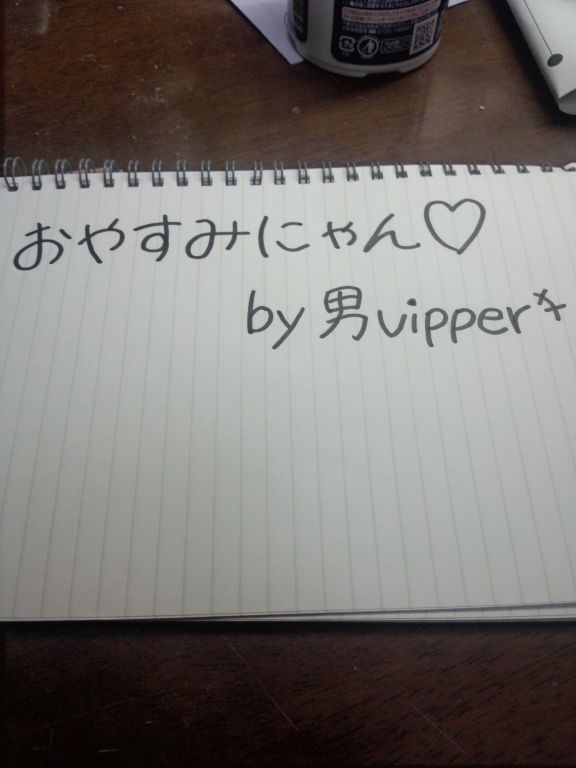 おやすみにゃん♡
by 男vipper*